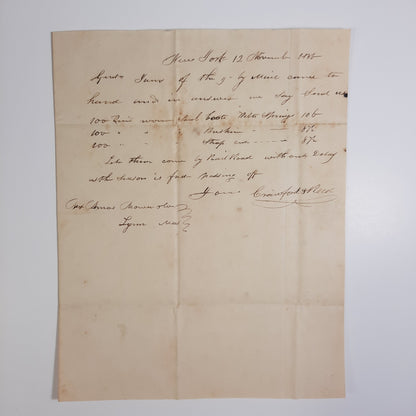 New York 12 November
Gents Yours of the 9 by Mail came to
hand and in answer we say Send us
100 Pair women Seal boots Springs
100 " " " Buskin
200 " " " Strap
Let them come by Rail Road without Delay
as the Season is fast Passing off
Yours Crawford & Reed
Lynn Mass